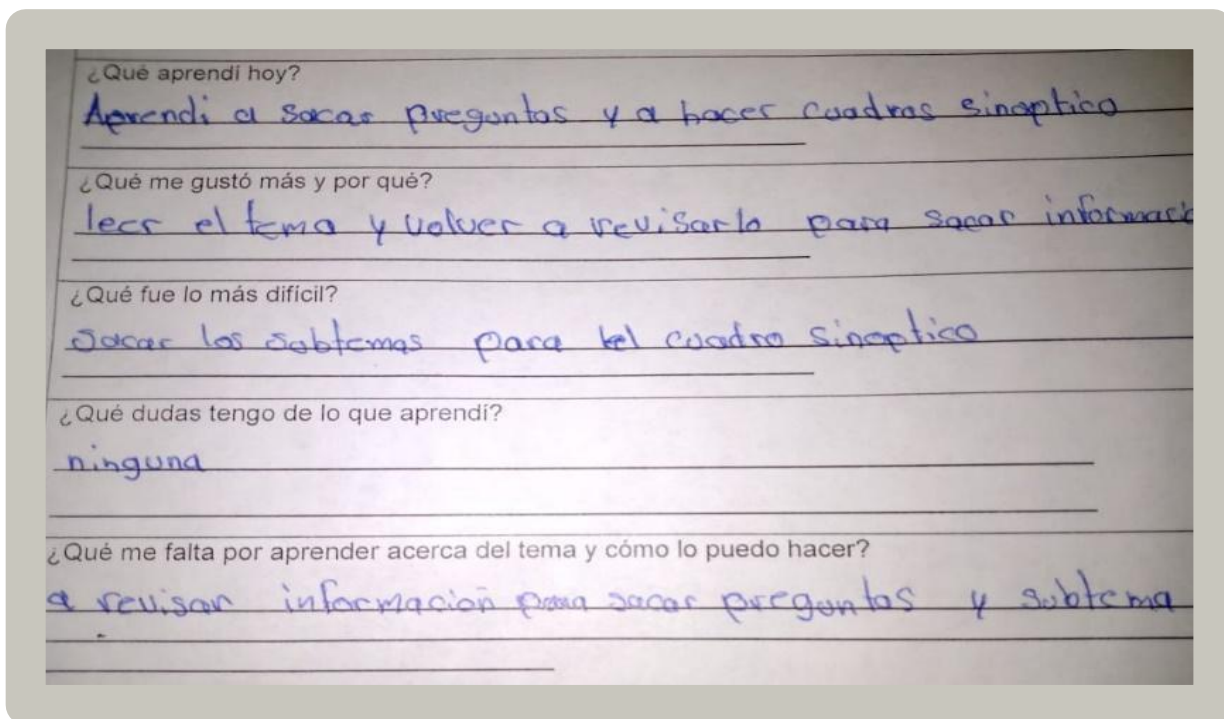 ¿Qué aprendí hoy?
Aprendi a sacar preguntas y a hacer cuadros sinoptico
¿Qué me gustó más y por qué?
leer el tema y volver a revisarlo para sacar informació
¿Qué fue lo más difícil?
Sacar los subtemas para el cuadro sinoptico
¿Qué dudas tengo de lo que aprendí?
ninguna
¿Qué me falta por aprender acerca del tema y cómo lo puedo hacer?
a revisar información para sacar preguntas y subtema